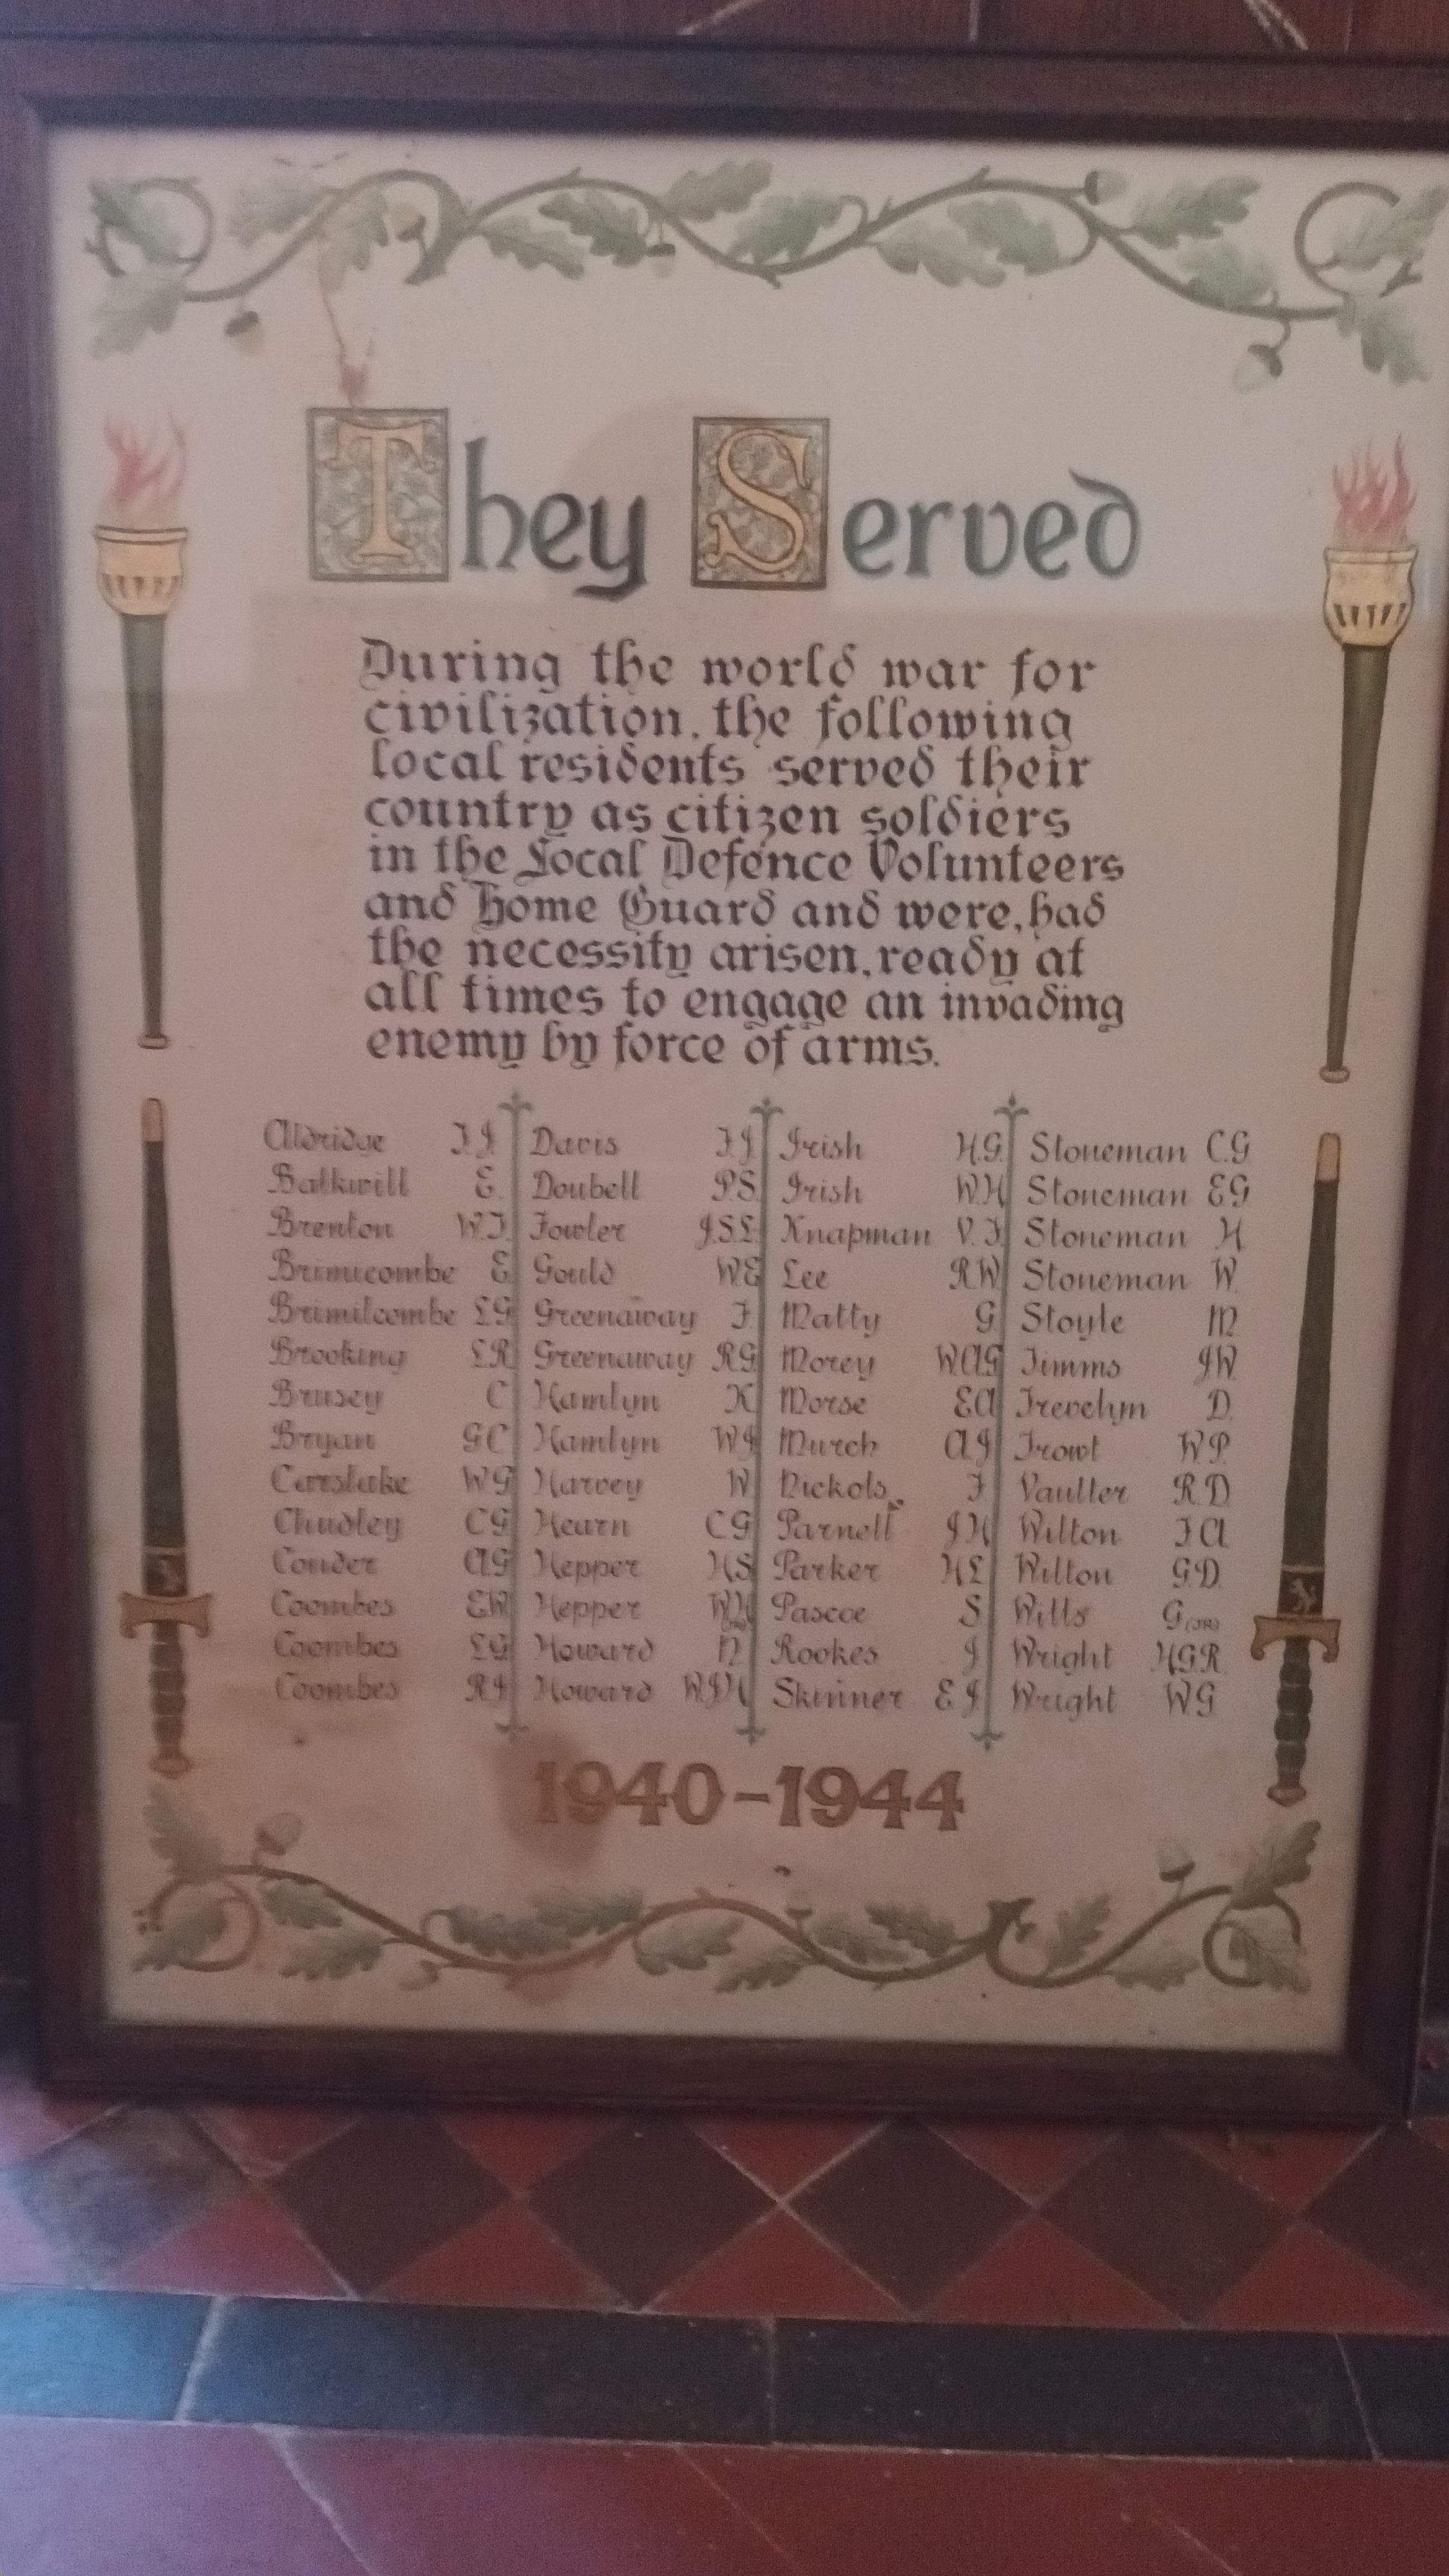 They Served
During the world war for
civilization, the following
local residents served their
country as citizen soldiers
in the Local Defence Volunteers
and Home Guard and were, had
the necessity arisen, ready at
all times to engage an invading
enemy by force of arms.
Aldridge
Balkwill E.
Brenton
Brimicombe E.
Brimilcombe L.G
Brooking L.R.
Brusey C
Bryan G C
Carslake W G
Chudley C G
Conder A G
Coombes E W
Coombes L G
Coombes
Davis
Doubell P.S.
Fowler J.S.L.
Gould W.E
Greenaway F.
Greenaway R G
Hamlyn K
Hamlyn W J
Harvey W.
Hearn C G
Hepper H S
Hepper
Howard N
Howard W J H
Irish H.G.
Irish W.H
Knapman V. F.
Lee R.W.
Matty G.
Morey W A G
Morse E A
Murch A J
Nickols F.
Parnell J H
Parker H L
Pascoe S
Rookes J
Skinner E J
Stoneman C.G.
Stoneman E G
Stoneman H
Stoneman W.
Stoyle M
Timms J W.
Trevelyn D.
Trowt W.P.
Vaulter R.D.
Wilton F A
Wilton G.D.
Wills G (JR)
Wright H G R
Wright W G
1940-1944